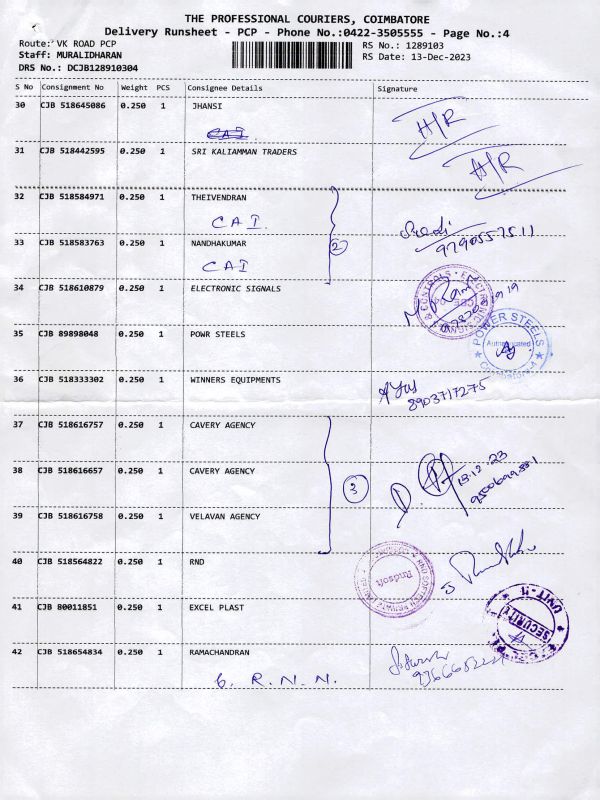 THE PROFESSIONAL COURIERS, COIMBATORE
Delivery Runsheet - PCP - Phone No.:0422-3505555 - Page No.:4
Route: VK ROAD PCP
RS No.: 1289103
Staff: MURALIDHARAN
RS Date: 13-Dec-2023
DRS No.: DCJB128910304
S No Consignment No Weight PCS Consignee Details Signature
30 CJB 518645086 0.250 1 JHANSI
CAI
H/R
31 CJB 518442595 0.250 1 SRI KALIAMMAN TRADERS
H/R
32 CJB 518584971 0.250 1 THEIVENDRAN
CAI
33 CJB 518583763 0.250 1 NANDHAKUMAR
CAI
2
9790557511
34 CJB 518610879 0.250 1 ELECTRONIC SIGNALS
35 CJB 89898048 0.250 1 POWR STEELS
POWER STEELS
36 CJB 518333302 0.250 1 WINNERS EQUIPMENTS
8903717275
37 CJB 518616757 0.250 1 CAVERY AGENCY
38 CJB 518616657 0.250 1 CAVERY AGENCY
3
13.12.23
39 CJB 518616758 0.250 1 VELAVAN AGENCY
40 CJB 518564822 0.250 1 RND
Rndsoft
41 CJB 80011851 0.250 1 EXCEL PLAST
UNIT-II
SECURITY
42 CJB 518654834 0.250 1 RAMACHANDRAN
G. R. N. N.